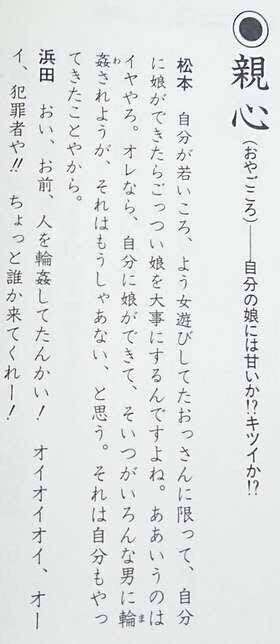 ◉親心(おやごころ)――自分の娘には甘いか!?キツイか!?
松本　自分が若いころ、よう女遊びしてたおっさんに限って、自分
に娘ができたらごっつい娘を大事にするんですよね。ああいうのは
イヤやろ。オレなら、自分に娘ができて、そいつがいろんな男に輪(ま)
姦(わ)されようが、それはもうしゃあない、と思う。それは自分もやっ
てきたことやから。
浜田　おい、お前、人を輪姦してたんかい！　オイオイオイ、オー
イ、犯罪者や!!　ちょっと誰か来てくれー！